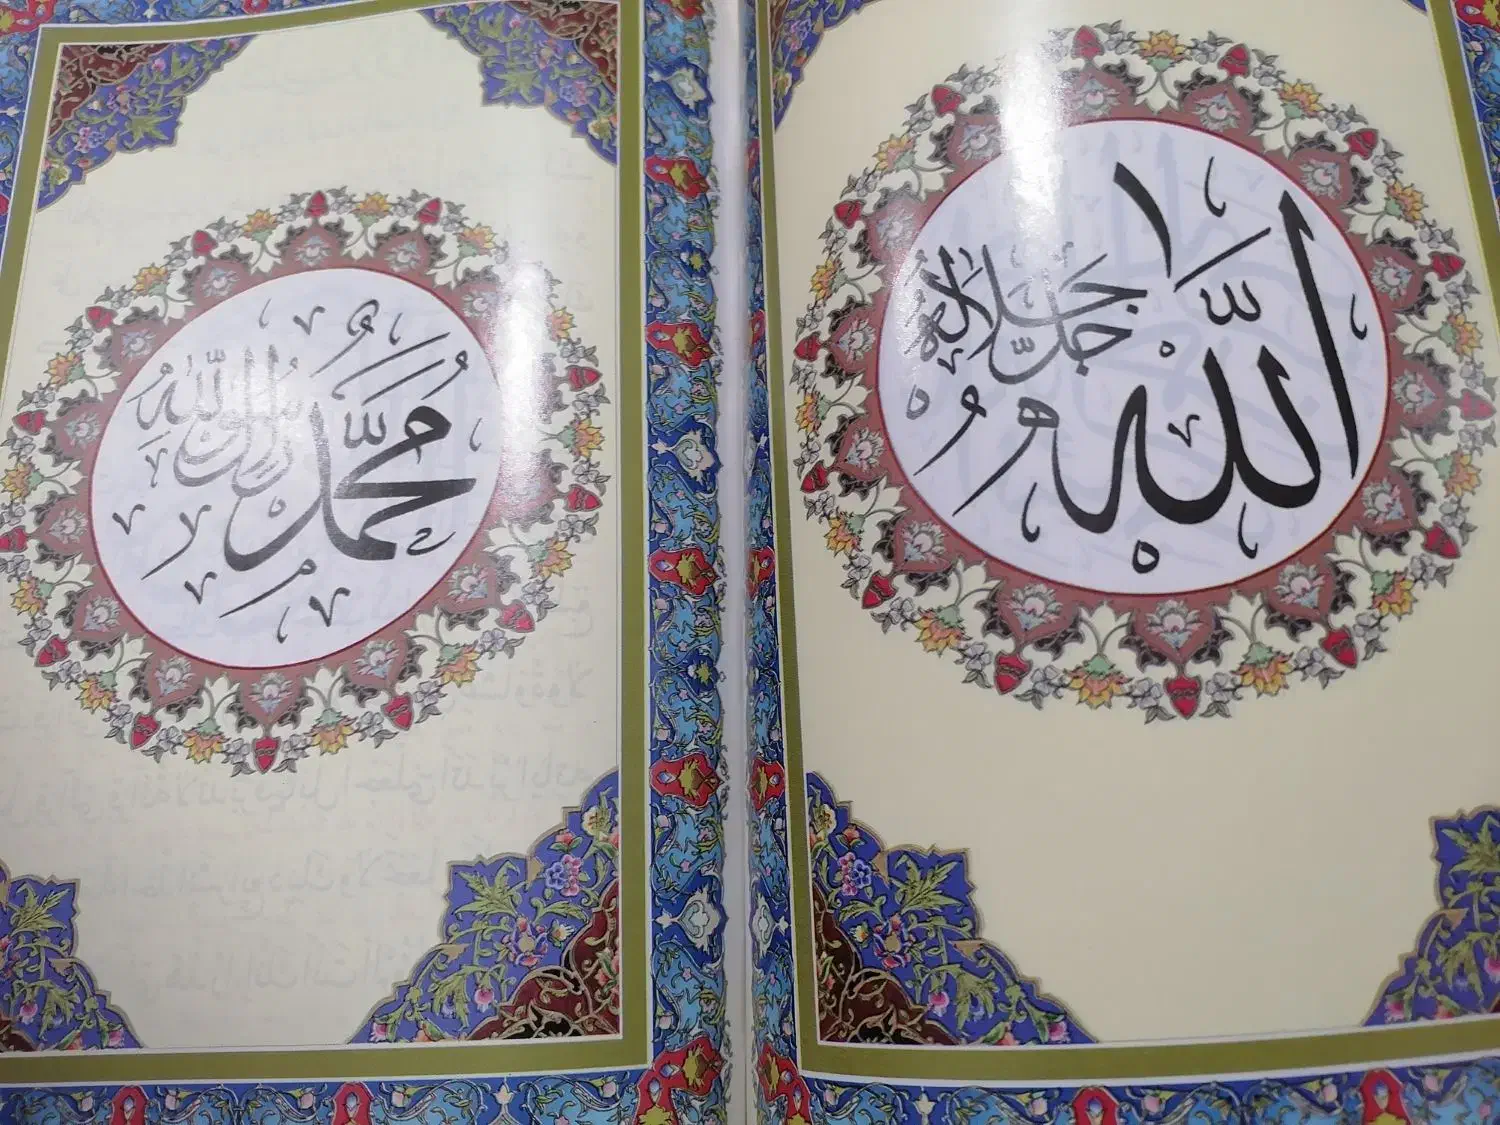 الله جل جلاله
محمد رسول الله